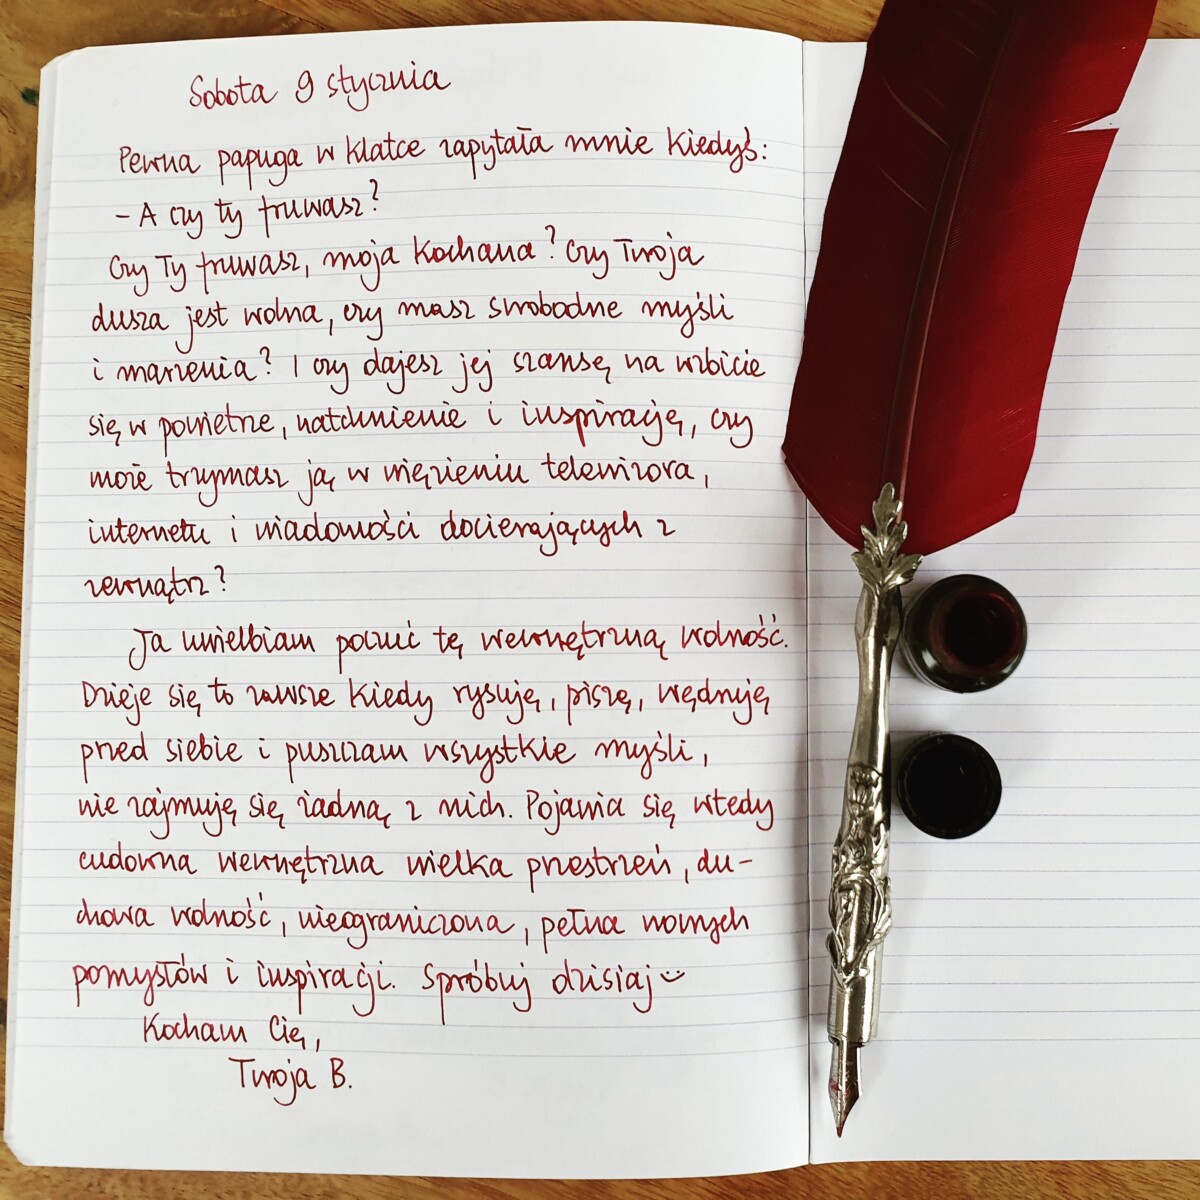 Sobota 9 stycznia
Pewna papuga w klatce zapytała mnie kiedyś:
- A czy ty fruwasz?
Czy Ty fruwasz, moja Kochana? Czy Twoja
dusza jest wolna, czy masz swobodne myśli
i marzenia? I czy dajesz jej szansę na wzbicie
się w powietrze, natchnienie i inspirację, czy
może trzymasz ją w więzieniu telewizora,
internetu i wiadomości docierających z
zewnątrz?
Ja uwielbiam poczuć tę wewnętrzną wolność.
Dzieje się to zawsze kiedy rysuję, piszę, wędruję
przed siebie i puszczam wszystkie myśli,
nie zajmuję się żadną z nich. Pojawia się wtedy
cudowna wewnętrzna wielka przestrzeń, du-
chowa wolność, nieograniczona, pełna nowych
pomysłów i inspiracji. Spróbuj dzisiaj
Kocham Cię,
Twoja B.